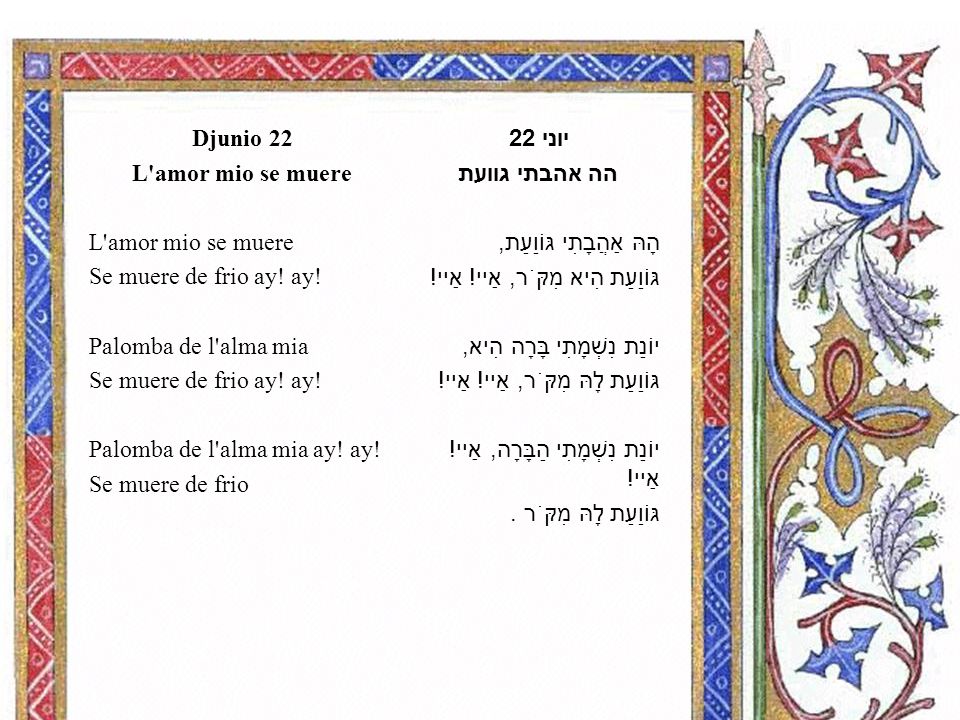 Djunio 22
L'amor mio se muere
L'amor mio se muere
Se muere de frio ay! ay!
Palomba de l'alma mia
Se muere de frio ay! ay!
Palomba de l'alma mia ay! ay!
Se muere de frio
יוני 22
הה אהבתי גוועת
הָהּ אַהֲבָתִי גּוֹוַעַת,
גּוֹוַעַת הִיא מִקֹּר, אַיי! אַיי!
יוֹנַת נִשְׁמָתִי בָּרָה הִיא,
גּוֹוַעַת לָהּ מִקֹּר, אַיי! אַיי!
יוֹנַת נִשְׁמָתִי הַבָּרָה, אַיי!
אַיי!
גּוֹוַעַת לָהּ מִקֹּר .